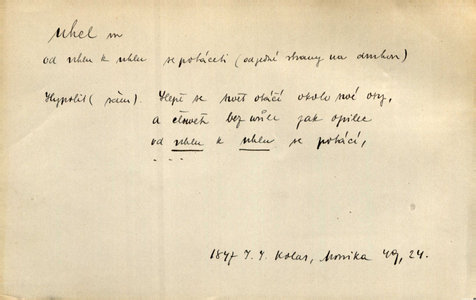 uhel m
od uhlu k uhlu se potáceti (od jedné strany na druhou)
Hypolit (sám). Slepě se svět otáčí okolo své osy,
a člověk bez vůle jak opilec
od uhlu k uhlu se potácí,
. . .
1847 J. J. Kolar, Monika 49, 24.